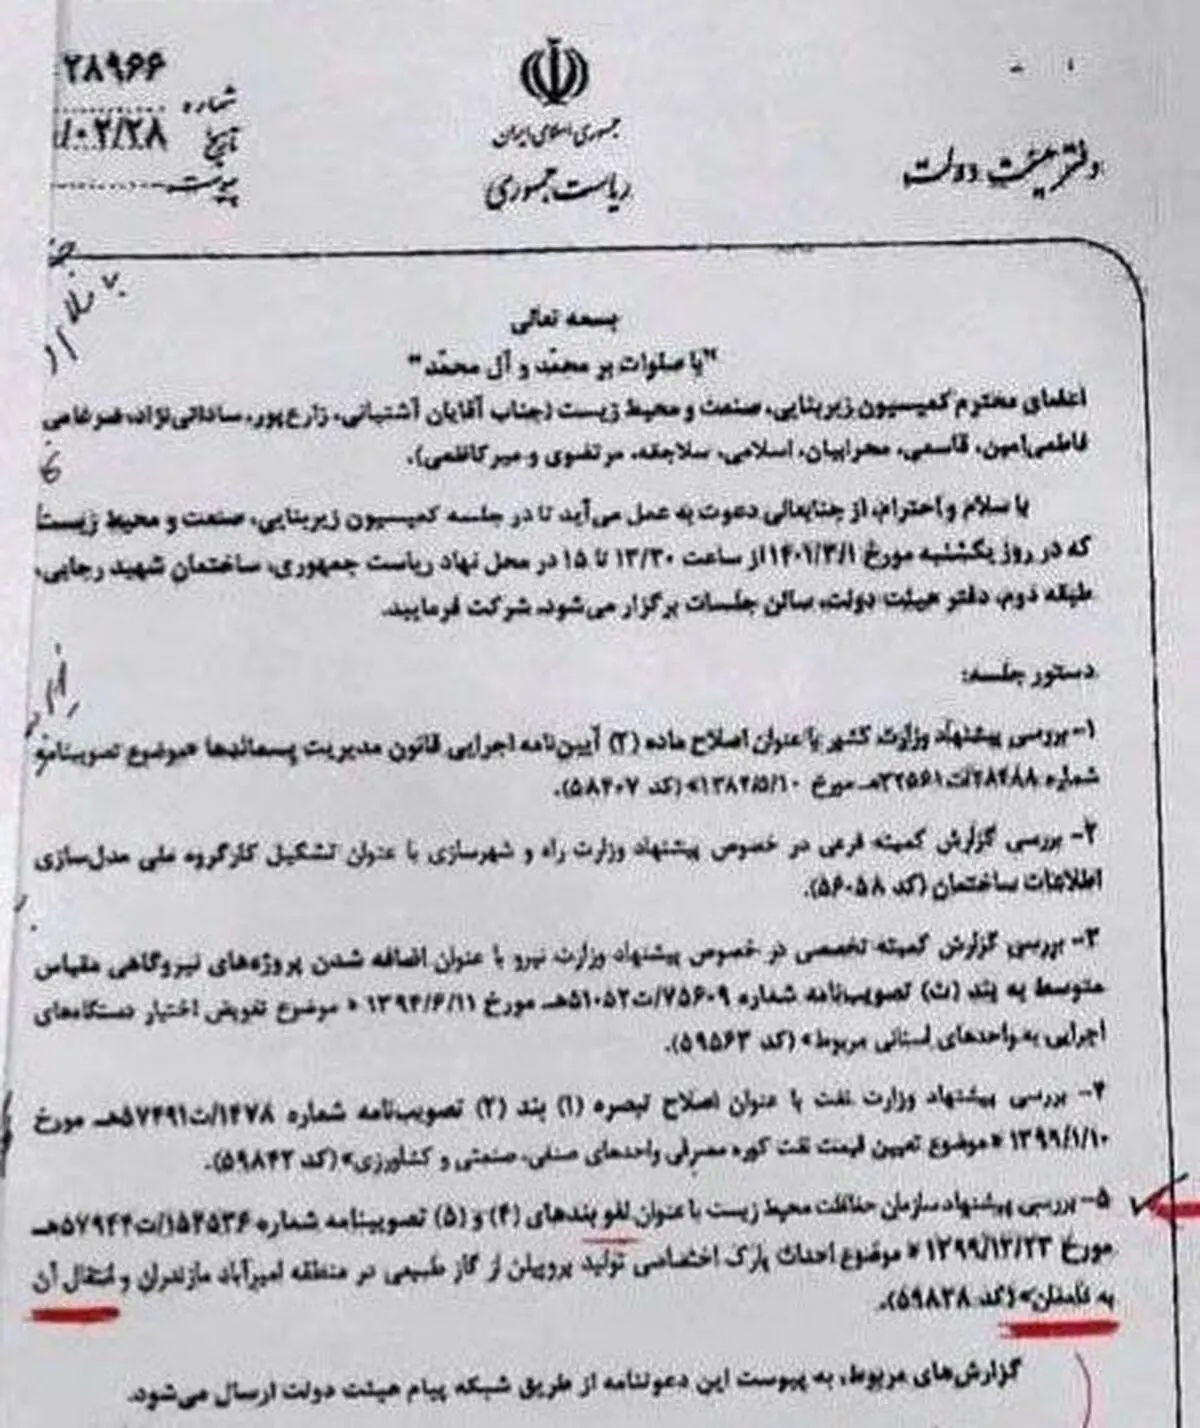 ۲۸۹۶۶
شماره
/۰۲/۲۸
تاریخ
پیوست
جمهوری اسلامی ایران
ریاست جمهوری
دفتر هیئت دولت
بسمه تعالی
"با صلوات بر محمّد و آل محمّد"
اعضای محترم کمیسیون زیربنایی، صنعت و محیط زیست (جناب آقایان آشتیانی، زارع‌پور، ساداتی‌نژاد، ضرغامی
فاطمی‌امین، قاسمی، محرابیان، اسلامی، سلاجقه، مرتضوی و میرکاظمی).
با سلام و احترام، از جنابعالی دعوت به عمل می‌آید تا در جلسه کمیسیون زیربنایی، صنعت و محیط زیست
که در روز یکشنبه مورخ ۱۴۰۱/۳/۱ از ساعت ۱۳/۳۰ تا ۱۵ در محل نهاد ریاست جمهوری، ساختمان شهید رجایی،
طبقه دوم، دفتر هیئت دولت، سالن جلسات برگزار می‌شود، شرکت فرمایید.
دستور جلسه:
۱- بررسی پیشنهاد وزارت کشور با عنوان اصلاح ماده (۲) آیین‌نامه اجرایی قانون مدیریت پسماندها «موضوع تصویبنامه
شماره ۲۸۴۸۸/ت۳۲۵۶۱هـ مورخ ۱۳۸۴/۵/۱۰» (کد ۵۸۴۰۷).
۲- بررسی گزارش کمیته فرعی در خصوص پیشنهاد وزارت راه و شهرسازی با عنوان تشکیل کارگروه ملی مدل‌سازی
اطلاعات ساختمان (کد ۵۶۰۵۸).
۳- بررسی گزارش کمیته تخصصی در خصوص پیشنهاد وزارت نیرو با عنوان اضافه شدن پروژه‌های نیروگاهی مقیاس
متوسط به بند (ث) تصویب‌نامه شماره ۷۵۶۰۹/ت۵۱۰۵۲هـ مورخ ۱۳۹۴/۶/۱۱ « موضوع تفویض اختیار دستگاه‌های
اجرایی به واحدهای استانی مربوط» (کد ۵۹۵۶۳).
۴- بررسی پیشنهاد وزارت نفت با عنوان اصلاح تبصره (۱) بند (۲) تصویب‌نامه شماره ۱۴۷۸/ت۵۷۴۹۱هـ مورخ
۱۳۹۹/۱/۱۰ «موضوع تعیین قیمت نفت کوره مصرفی واحدهای صنفی، صنعتی و کشاورزی» (کد ۵۹۸۴۲).
۵- بررسی پیشنهاد سازمان حفاظت محیط زیست با عنوان لغو بندهای (۴) و (۵) تصویبنامه شماره ۱۵۲۵۳۶/ت۵۷۹۴۴هـ
مورخ ۱۳۹۹/۱۲/۲۳ « موضوع احداث پارک اختصاصی تولید پروپیلن از گاز طبیعی در منطقه امیرآباد مازندران و انتقال آن
به دامغان» (کد ۵۹۸۲۸).
گزارش‌های مربوط، به پیوست این دعوتنامه از طریق شبکه پیام هیئت دولت ارسال می‌شود.